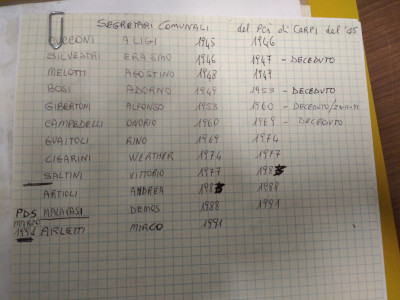 SEGRETARI COMUNALI del PCI di CARPI del '45
ALIGI 1945 1946
SILVESTRI ERASMO 1946 1947 - DECEDUTO
MELOTTI AGOSTINO 1948 1949
BOSI ADORNO 1949 1953 - DECEDUTO
GIBERTONI ALFONSO 1953 1960 - DECEDUTO
CAMPEDELLI ONORIO 1960 1969 - DECEDUTO
GUAITOLI RINO 1969 1974
CIGARINI WERTHER 1974 1977
SALTINI VITTORIO 1977 198
ARTIOLI ANDREA 198 1988
PDS MALAVASI DEMOS 1988 1991
MARZO
1991 ARLETTI MIRCO 1991